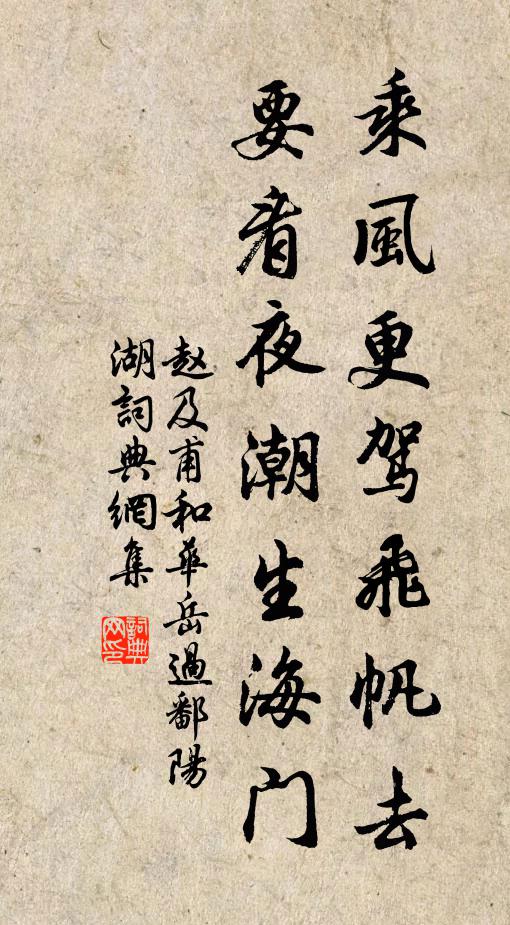 乘風更駕飛帆去
要看夜潮生海门
赵及甫和華岳過鄱陽
湖詞典網集
詞典
网印